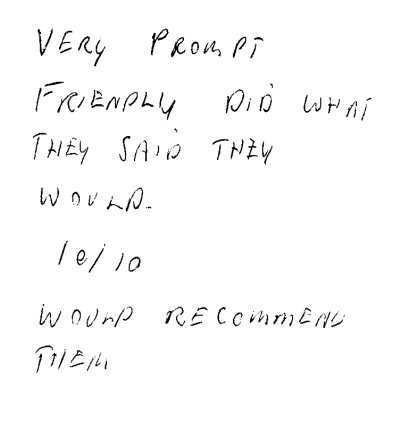 VERY PROMPT
FRIENDLY DID WHAT
THEY SAID THEY
WOULD.
10/10
WOULD RECOMMEND
THEM